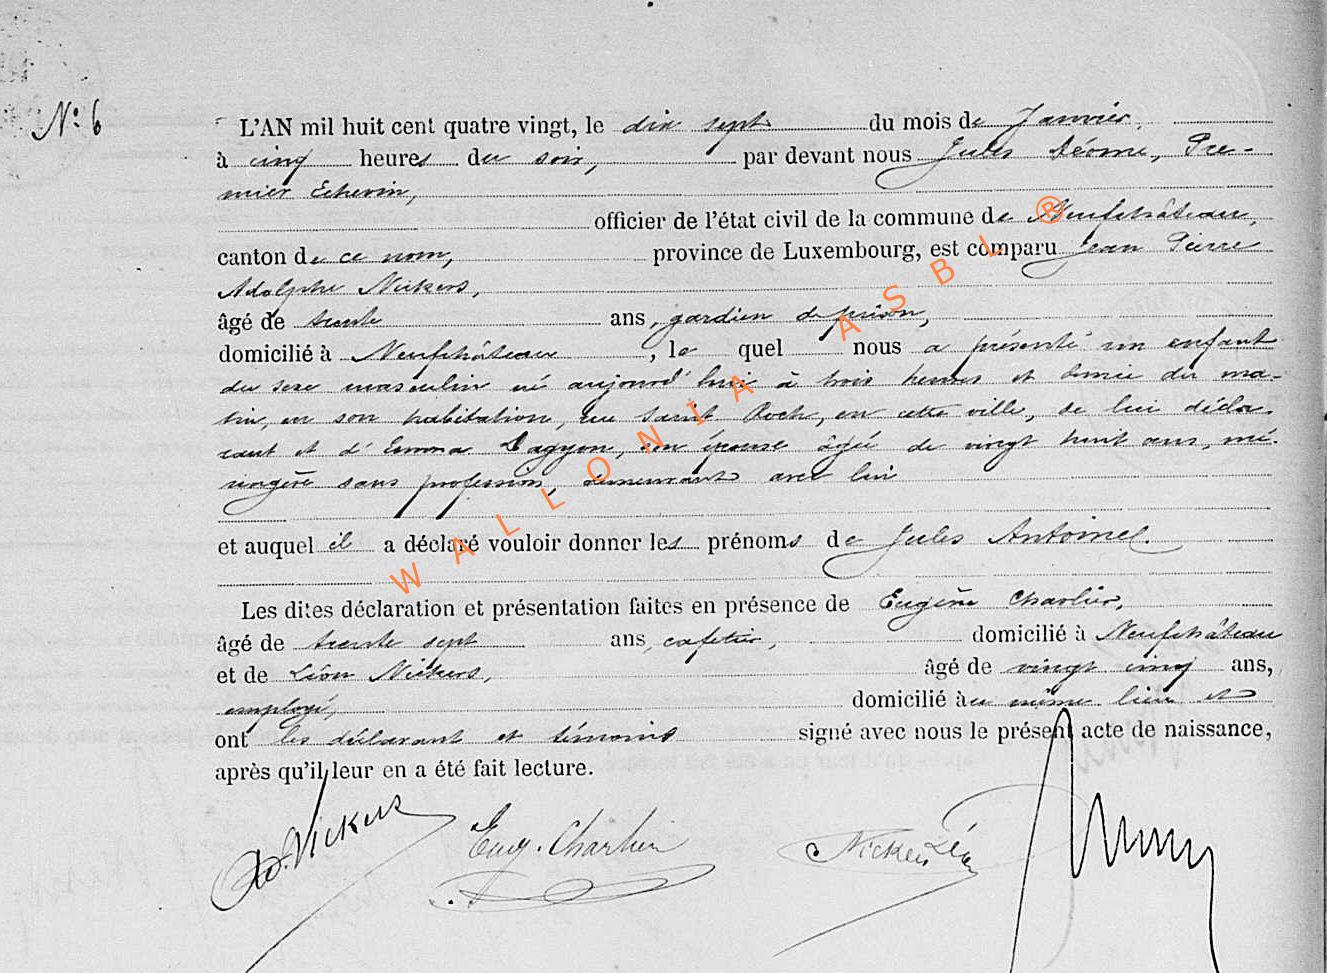 N° 6
L'AN mil huit cent quatre vingt, le dix sept du mois de Janvier,
à cinq heures du soir, par devant nous Jules Pre-
mier Echevin,
officier de l'état civil de la commune de Neufchâteau,
canton de ce nom, province de Luxembourg, est comparu Jean Pierre
Adolphe Nickers,
âgé de trente ans, gardien de prison,
domicilié à Neufchâteau, le quel nous a présenté un enfant
du sexe masculin né aujourd'hui à trois heures et demie du ma-
tin, en son habitation, rue Saint Roch, en cette ville, de lui décla-
rant et d'Emma son épouse âgée de vingt huit ans, mé-
nagère sans profession, demeurant avec lui
et auquel il a déclaré vouloir donner les prénoms de Jules Antoine.
Les dites déclaration et présentation faites en présence de Eugène Charlier,
âgé de trente sept ans, cafetier, domicilié à Neufchâteau
et de Léon Nickers, âgé de vingt cinq ans,
employé, domicilié au même lieu et
ont les déclarant et témoins signé avec nous le présent acte de naissance,
après qu'il leur en a été fait lecture.
Ad. Nickers Eug. Charlier Nickers Léon
WALLONIA ASBL ®